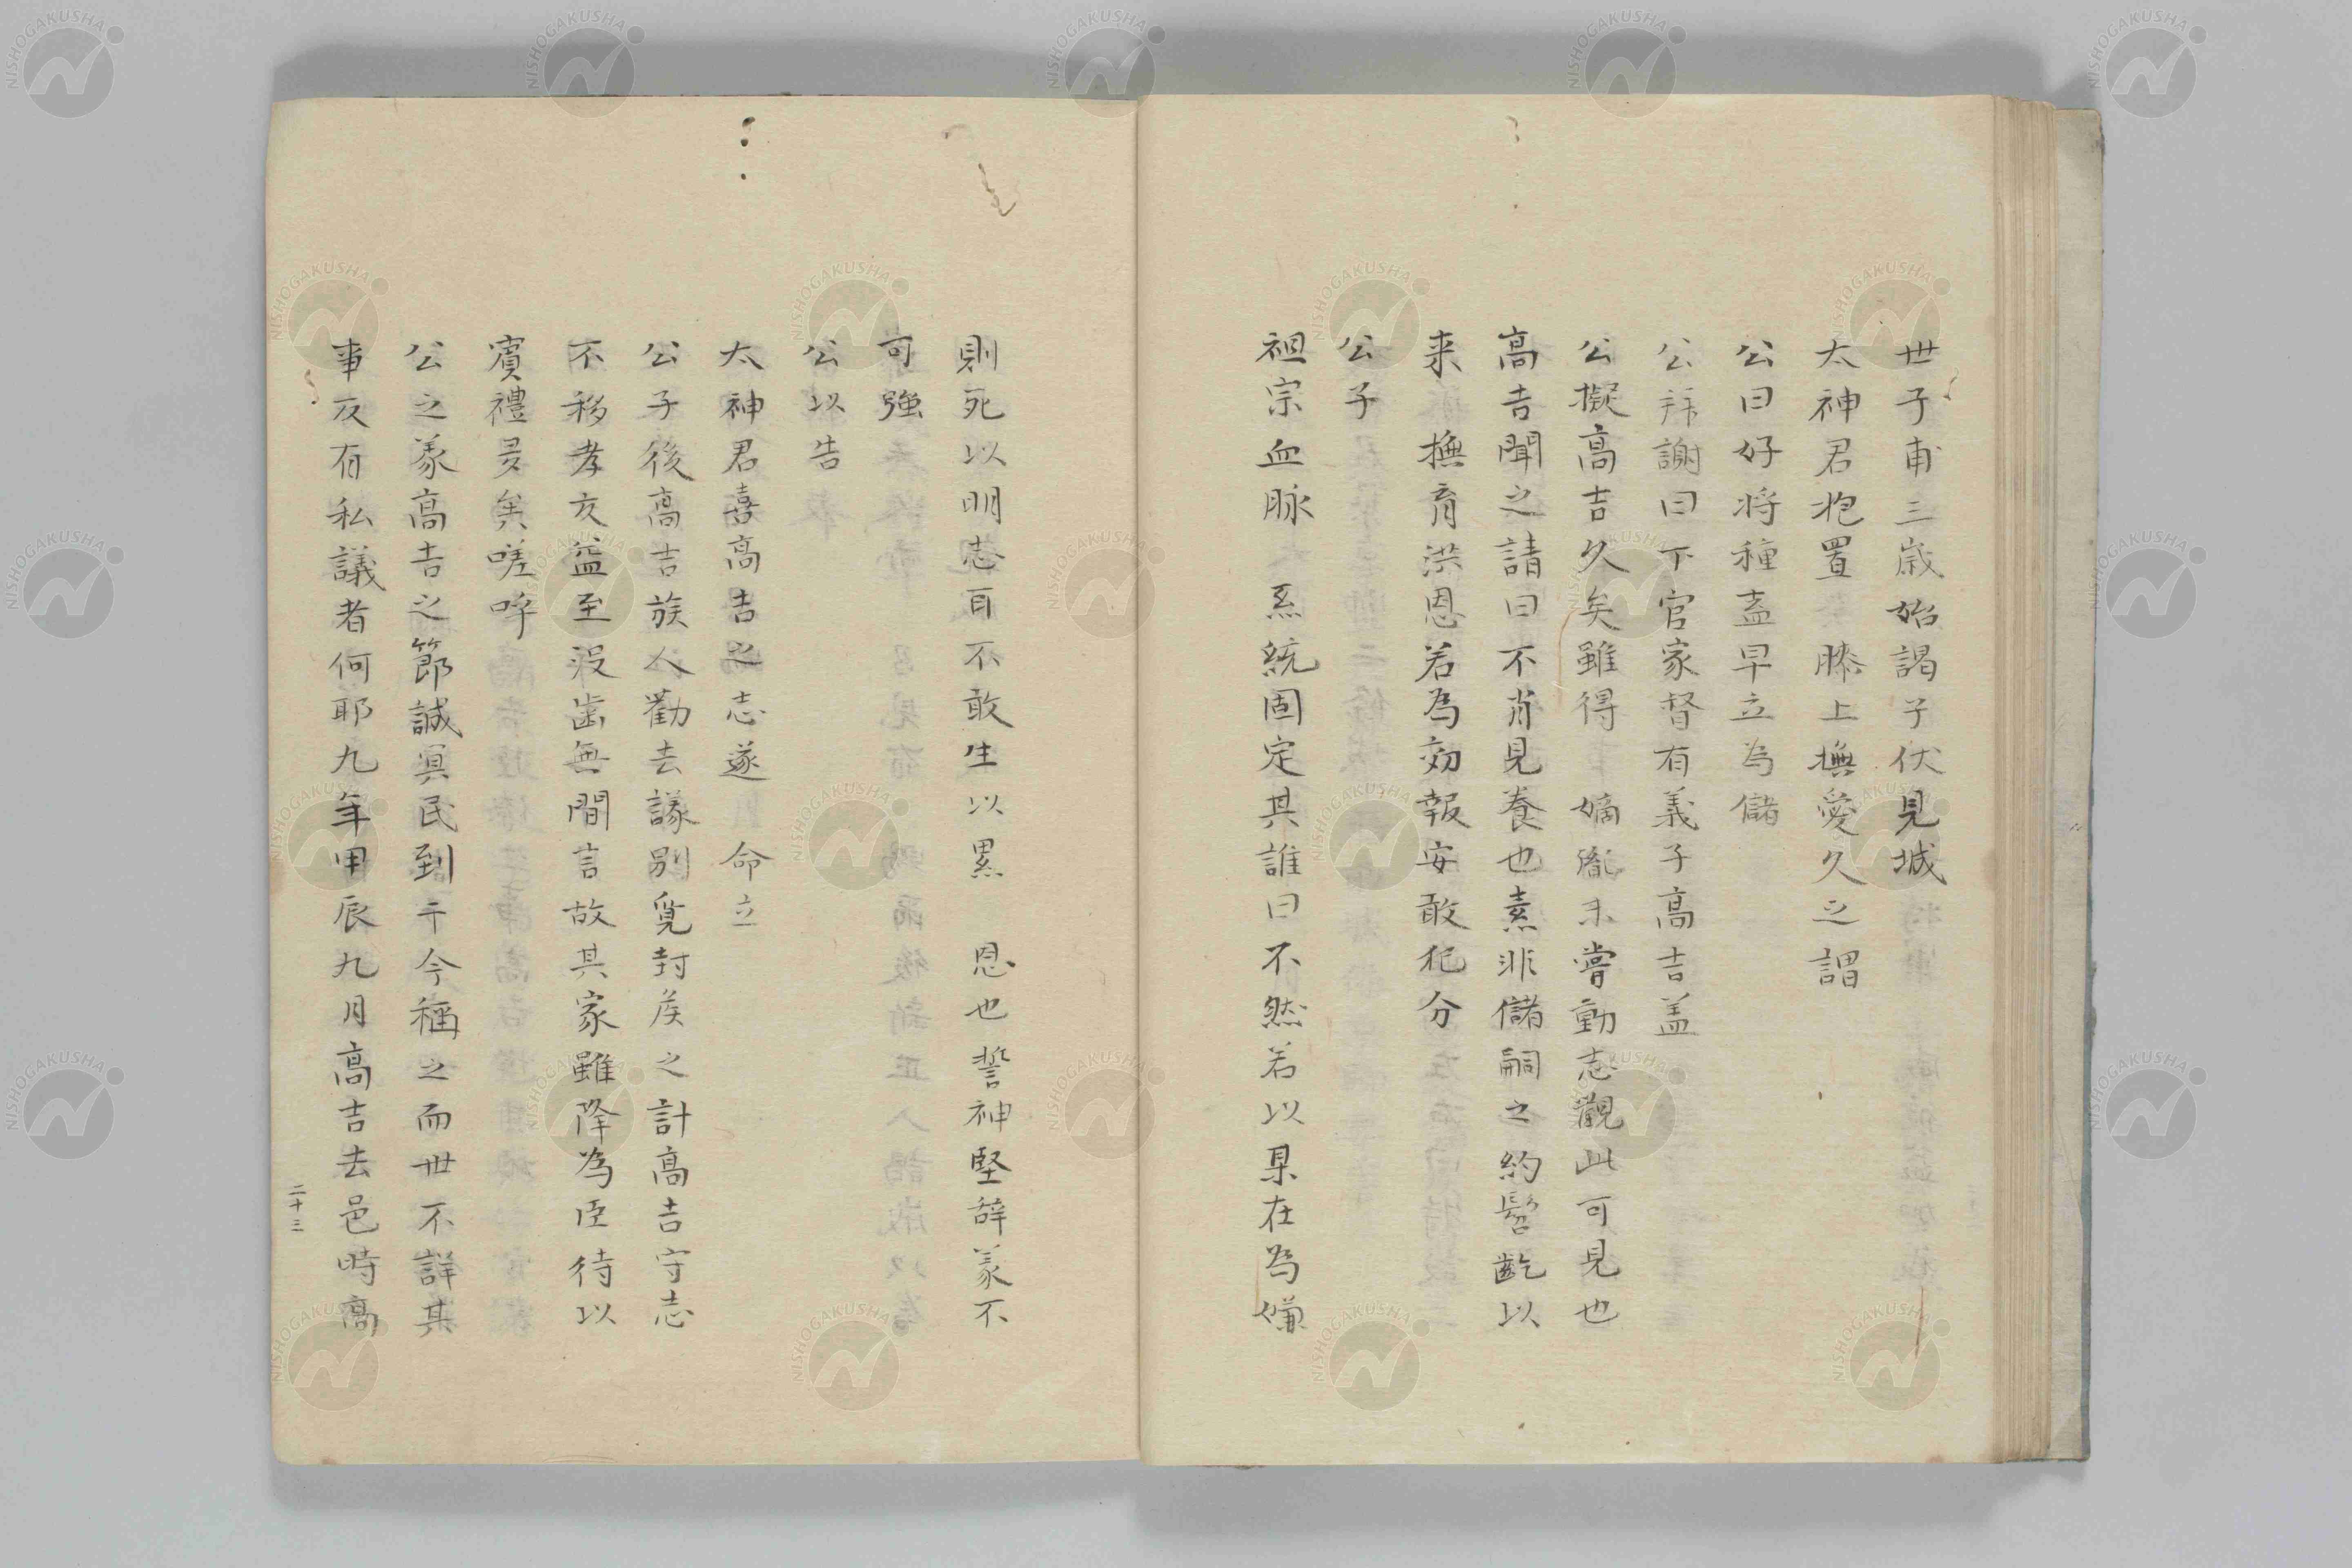 世子甫三歳始謁于伏見城
太神君抱置 膝上撫愛久之謂
公曰好将種盍早立為儲
公拜謝曰下官家督有義子高吉盖
公擬高吉久矣雖得 嫡胤未嘗動志觀此可見也
高吉聞之請曰不肖見養也素非儲嗣之約髫齔以
来 撫育洪恩若為効報安敢犯分
公子
祖宗血脉 系統固定其誰曰不然若以某在為嫌
則死以明志耳不敢生以累 恩也誓神堅辞義不
可強
公以告
太神君喜高吉之志遂 命立
公子後高吉族人勸去議別覓封矦之計高吉守志
不移孝友益至没歯無間言故其家雖降為臣待以
賓禮 矣嗟呼
公之義高吉之節誠 民到于今稱之而世不詳其
事反有私議者何耶九年甲辰九月高吉去邑時高
二十三
NISHOGAKUSHA